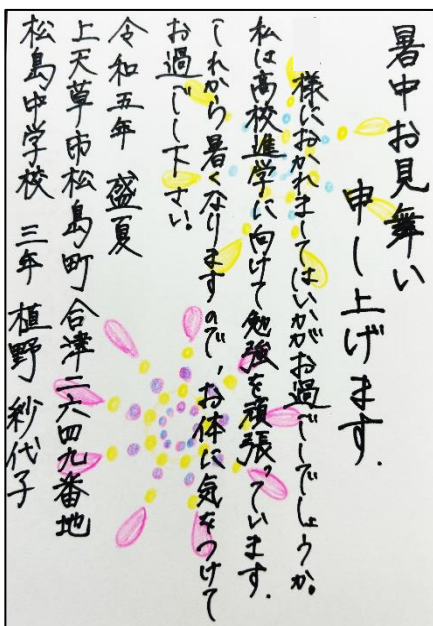 暑中お見舞い
申し上げます.
様におかれましてはいかがお過ごしでしょうか。
私は高校進学に向けて勉強を頑張っています.
これから暑くなりますので、お体に気をつけて
お過ごし下さい。
令和五年 盛夏
上天草市松島町合津二六四九番地
松島中学校 三年 植野紗代子